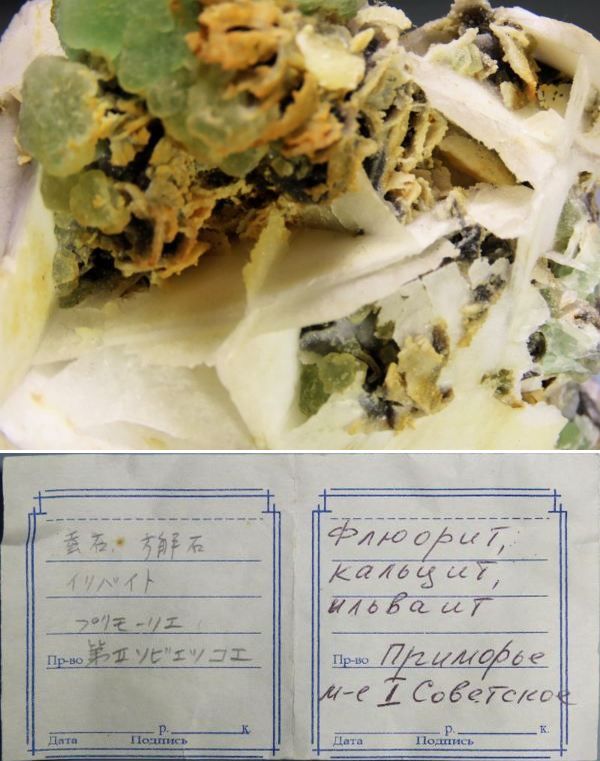 蛍石, 方解石
イリバイト
プリモーリエ
Пр-во 第Ⅱソビエツコエ
р. к.
Дата Подпись
Флюорит,
кальцит,
ильваит
Пр-во Приморье
м-е I Советское
р. к.
Дата Подпись